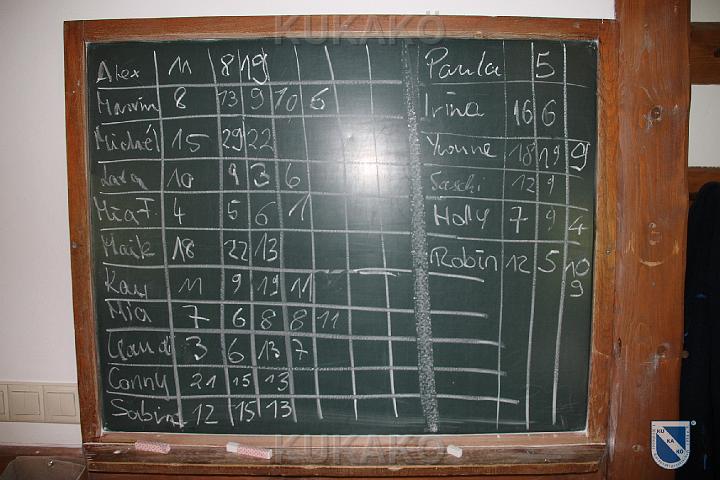 KUKAKÖ
Alex 11 8 19
Marvin 8 13 9 10 6
Michaél 15 29 22
10 9 3 6
Mia T. 4 5 6 1
Maik 18 22 13
Kay 11 9 19 11
Mia 7 6 8 8 11
Claudi 3 6 13 7
Conny 21 15 13
Sabin 12 15 13
Paula 5
Irina 16 6
Yvonne 18 19 9
Saschi 12 9
Holy 7 9 4
Robin 12 5 10
9
KUKAKÖ
KU
KA
KÖ